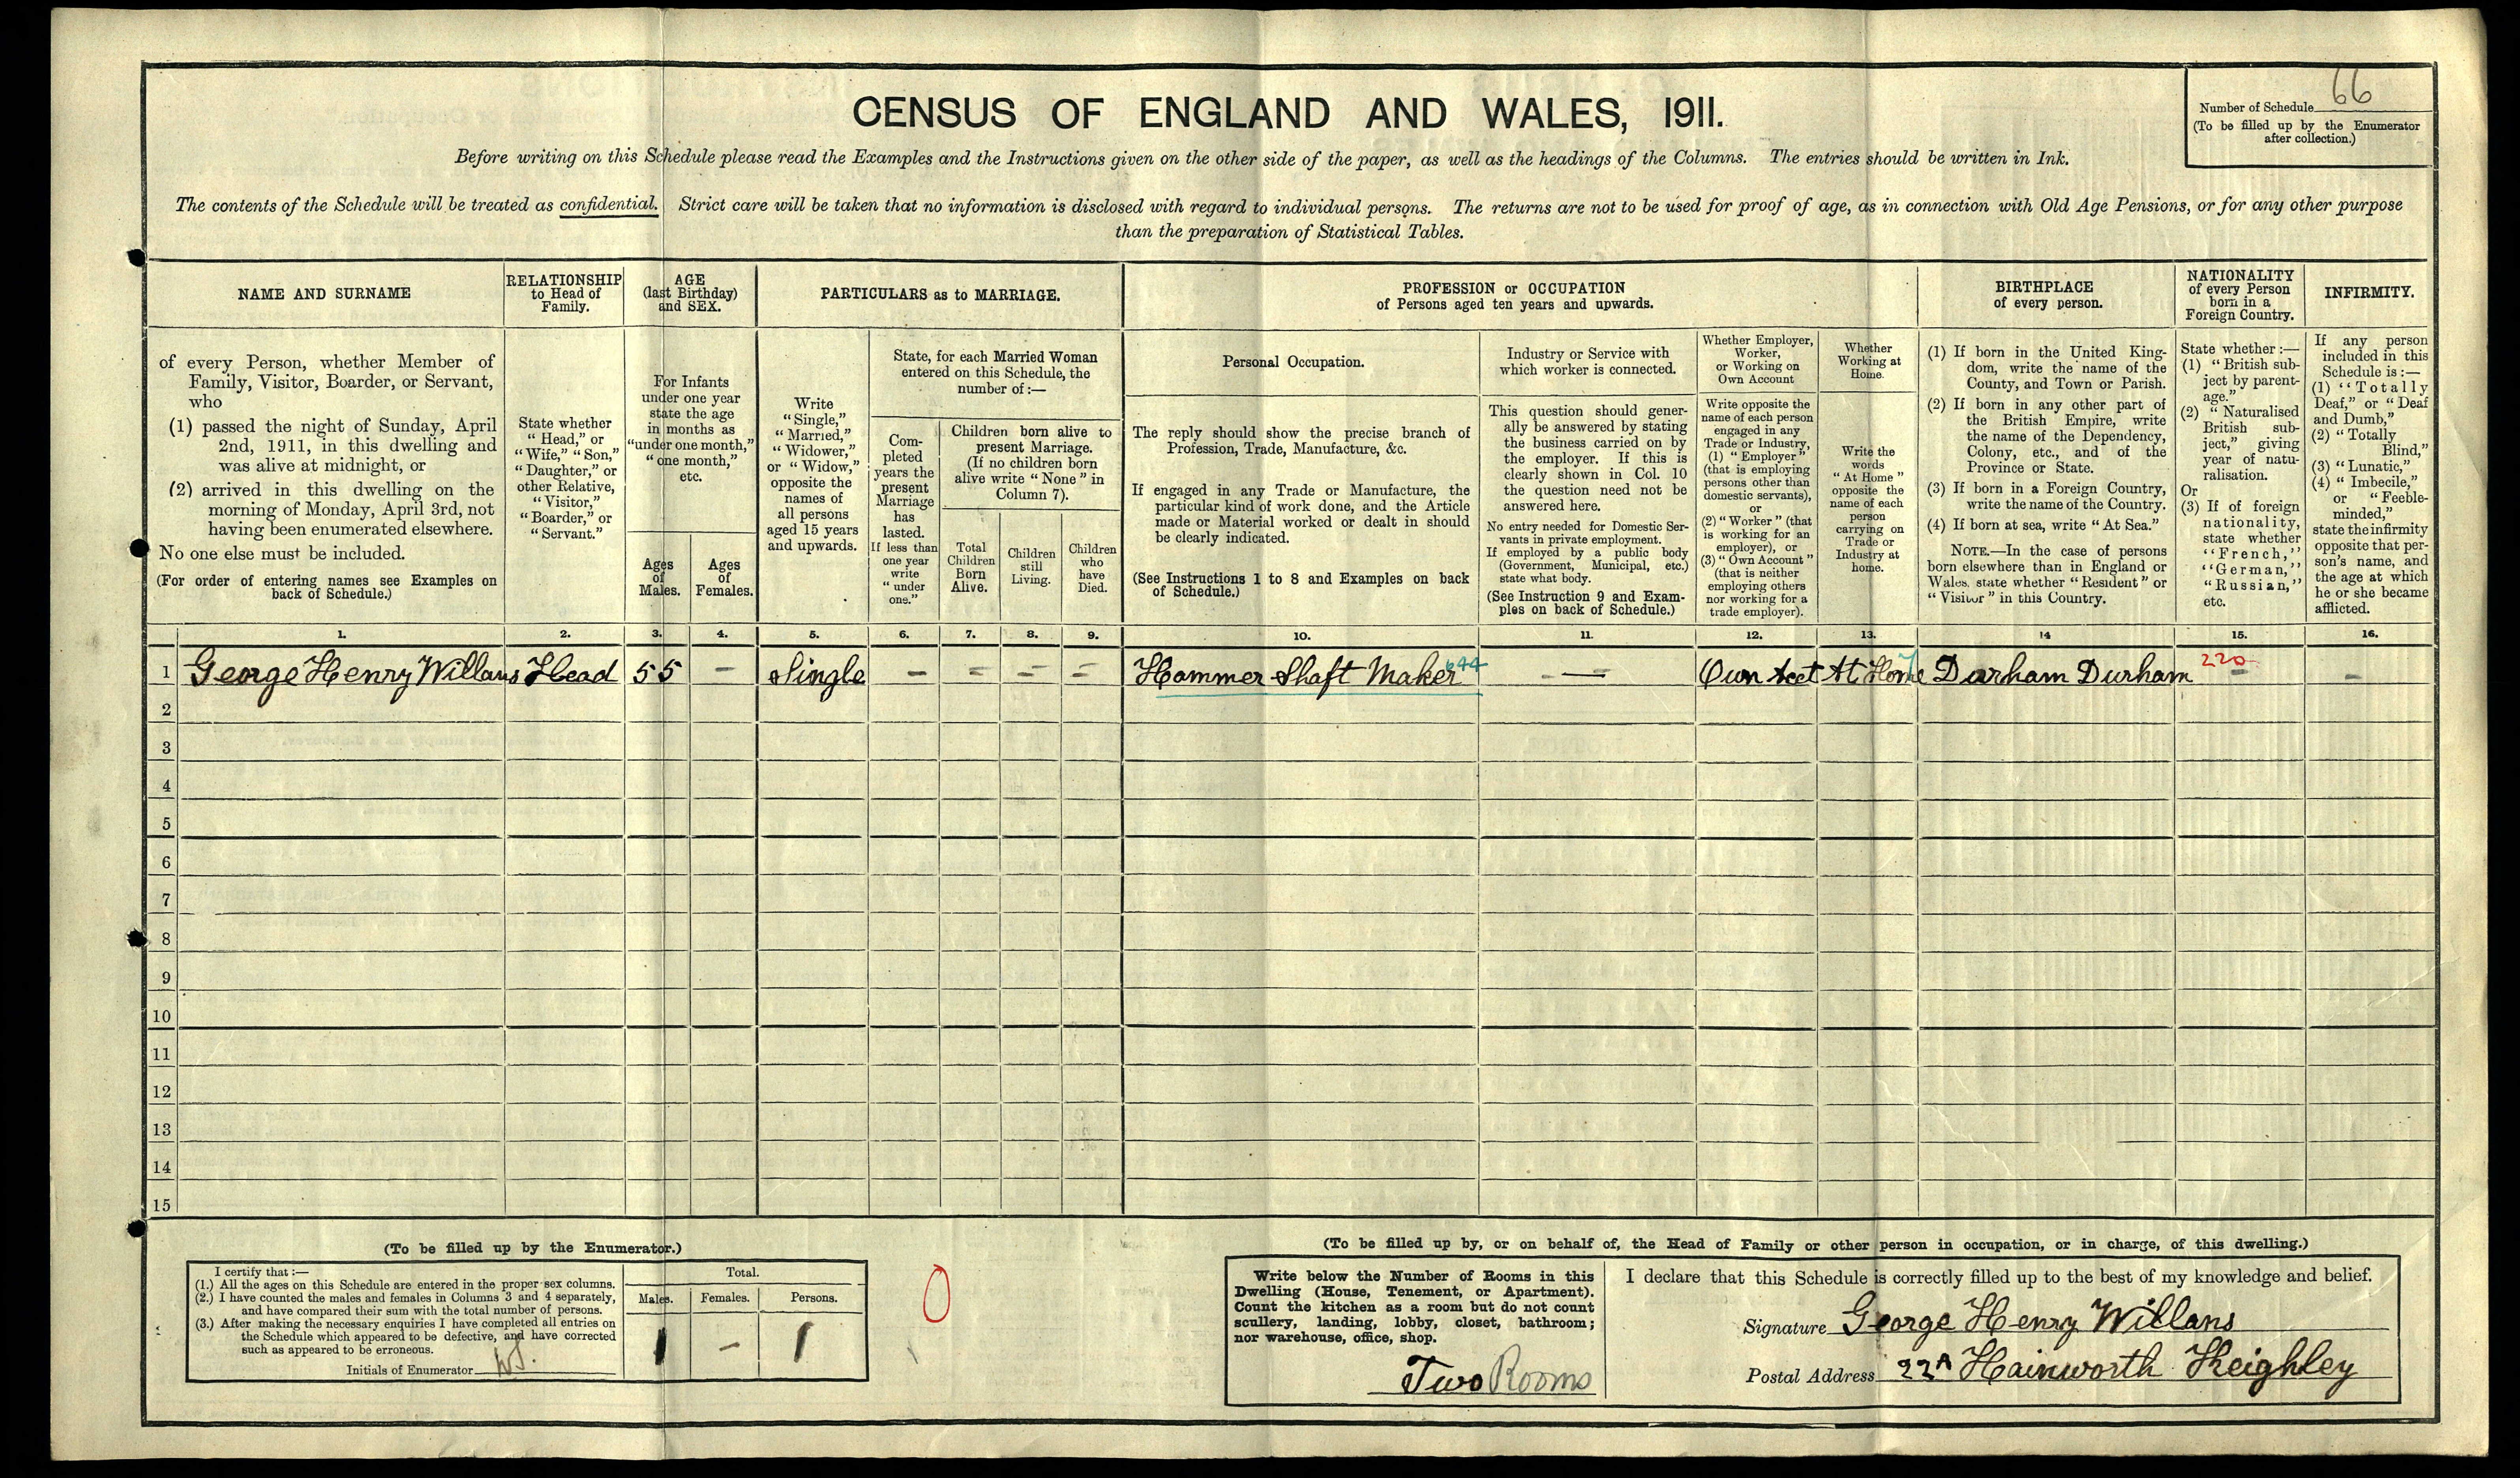 CENSUS OF ENGLAND AND WALES, 1911.
Number of Schedule 66
(To be filled up by the Enumerator
after collection.)
Before writing on this Schedule please read the Examples and the Instructions given on the other side of the paper, as well as the headings of the Columns. The entries should be written in Ink.
The contents of the Schedule will be treated as confidential. Strict care will be taken that no information is disclosed with regard to individual persons. The returns are not to be used for proof of age, as in connection with Old Age Pensions, or for any other purpose
than the preparation of Statistical Tables.
NAME AND SURNAME
of every Person, whether Member of
Family, Visitor, Boarder, or Servant,
who
(1) passed the night of Sunday, April
2nd, 1911, in this dwelling and
was alive at midnight, or
(2) arrived in this dwelling on the
morning of Monday, April 3rd, not
having been enumerated elsewhere.
No one else must be included.
(For order of entering names see Examples on
back of Schedule.)
RELATIONSHIP
to Head of
Family.
State whether
"Head," or
"Wife," "Son,"
"Daughter," or
other Relative,
"Visitor,"
"Boarder," or
"Servant."
AGE
(last Birthday)
and SEX.
For Infants
under one year
state the age
in months as
"under one month,"
"one month,"
etc.
Ages
of
Males.
Ages
of
Females.
PARTICULARS as to MARRIAGE.
Write
"Single,"
"Married,"
"Widower,"
or "Widow,"
opposite the
names of
all persons
aged 15 years
and upwards.
State, for each Married Woman
entered on this Schedule, the
number of:—
Com-
pleted
years the
present
Marriage
has
lasted.
If less than
one year
write
"under
one."
Children born alive to
present Marriage.
(If no children born
alive write "None" in
Column 7).
Total
Children
Born
Alive.
Children
still
Living.
Children
who
have
Died.
PROFESSION or OCCUPATION
of Persons aged ten years and upwards.
Personal Occupation.
The reply should show the precise branch of
Profession, Trade, Manufacture, &c.
If engaged in any Trade or Manufacture, the
particular kind of work done, and the Article
made or Material worked or dealt in should
be clearly indicated.
(See Instructions 1 to 8 and Examples on back
of Schedule.)
Industry or Service with
which worker is connected.
This question should gener-
ally be answered by stating
the business carried on by
the employer. If this is
clearly shown in Col. 10
the question need not be
answered here.
No entry needed for Domestic Ser-
vants in private employment.
If employed by a public body
(Government, Municipal, etc.)
state what body.
(See Instruction 9 and Exam-
ples on back of Schedule.)
Whether Employer,
Worker,
or Working on
Own Account
Write opposite the
name of each person
engaged in any
Trade or Industry,
(1) "Employer"
(that is employing
persons other than
domestic servants),
or
(2) "Worker" (that
is working for an
employer), or
(3) "Own Account"
(that is neither
employing others
nor working for a
trade employer).
Whether
Working at
Home.
Write the
words
"At Home"
opposite the
name of each
person
carrying on
Trade or
Industry at
home.
BIRTHPLACE
of every person.
(1) If born in the United King-
dom, write the name of the
County, and Town or Parish.
(2) If born in any other part of
the British Empire, write
the name of the Dependency,
Colony, etc., and of the
Province or State.
(3) If born in a Foreign Country,
write the name of the Country.
(4) If born at sea, write "At Sea."
NOTE.—In the case of persons
born elsewhere than in England or
Wales, state whether "Resident" or
"Visitor" in this Country.
NATIONALITY
of every Person
born in a
Foreign Country.
State whether :—
(1) "British sub-
ject by parent-
age."
(2) "Naturalised
British sub-
ject," giving
year of natu-
ralisation.
Or
(3) If of foreign
nationality,
state whether
"French,"
"German,"
"Russian,"
etc.
INFIRMITY.
If any person
included in this
Schedule is:—
(1) "Totally
Deaf," or "Deaf
and Dumb,"
(2) "Totally
Blind,"
(3) "Lunatic,"
(4) "Imbecile,"
or "Feeble-
minded,"
state the infirmity
opposite that per-
son's name, and
the age at which
he or she became
afflicted.
1. 2. 3. 4. 5. 6. 7. 8. 9. 10. 11. 12. 13. 14 15. 16.
1 George Henry Willans Head 55 – Single – – – – Hammer Shaft Maker 644 — Own Acct At Home Durham Durham 220 – –
2
3
4
5
6
7
8
9
10
11
12
13
14
15
(To be filled up by the Enumerator.)
I certify that :—
(1.) All the ages on this Schedule are entered in the proper sex columns.
(2.) I have counted the males and females in Columns 3 and 4 separately,
and have compared their sum with the total number of persons.
(3.) After making the necessary enquiries I have completed all entries on
the Schedule which appeared to be defective, and have corrected
such as appeared to be erroneous.
Initials of Enumerator
Total.
Males. Females. Persons.
1 – 1
0
(To be filled up by, or on behalf of, the Head of Family or other person in occupation, or in charge, of this dwelling.)
Write below the Number of Rooms in this
Dwelling (House, Tenement, or Apartment).
Count the kitchen as a room but do not count
scullery, landing, lobby, closet, bathroom;
nor warehouse, office, shop.
Two Rooms
I declare that this Schedule is correctly filled up to the best of my knowledge and belief.
Signature George Henry Willans
Postal Address 22A Hainworth Keighley